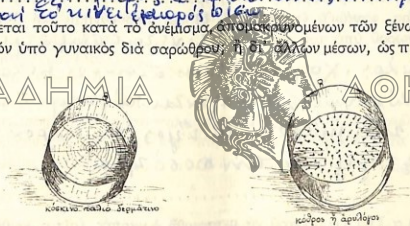 καὶ τὸ κινεῖ
εται τοῦτο κατὰ τὸ ἀνέμισμα, ἀπομακρυνομένων τῶν ξένω
όν ὑπὸ γυναικὸς διὰ σαρώθρου, ἢ δι' ἄλλων μέσων, ὡς π
ΑΔΗΜΙΑ ΑΘΗ
κόσκινο παλιὸ δερμάτινο
κόθρος ἢ ἀρυλόγος